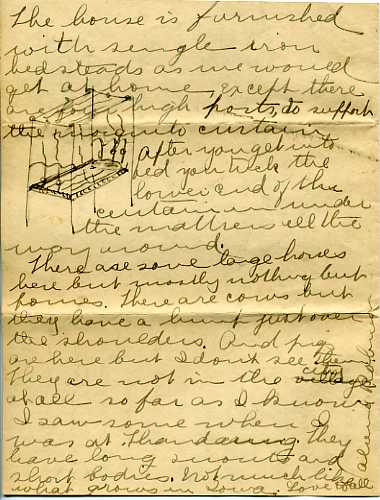 The house is furnished
with single iron
bedsteads as we would
get at home except there
are four high posts, to support
the mosquito curtain.
After you get into
bed you tuck the
lower end of the
curtain in under
the mattress all the
way around.
There are some large horses
here but mostly nothing but
ponies. There are cows but
they have a hump just over
the shoulders. And pigs
are here but I don't see them
They are not in the city
at all so far as I know
I saw some when I
was at Thandaung. They
have long snouts and
short bodies. Not much like
what grows in Iowa. Love to all